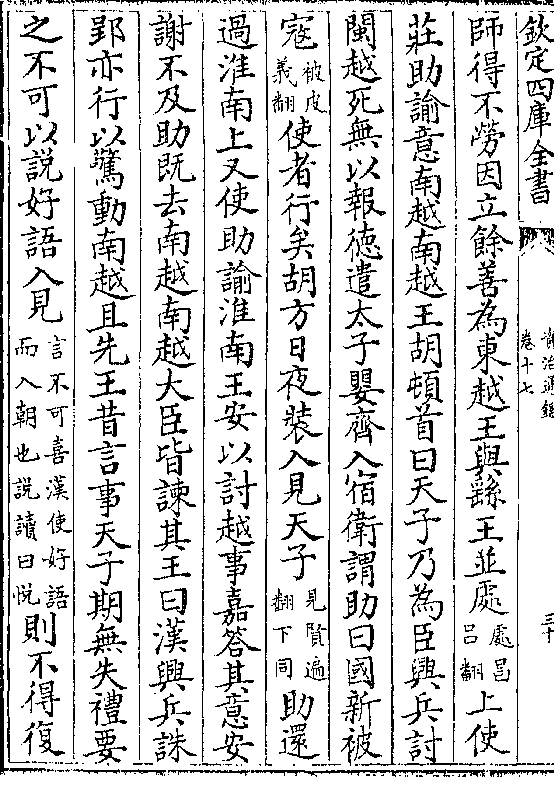 欽定四庫全書
卷十七
師得不勞因立餘善為東越王與繇王並處處昌吕翻上使
莊助諭意南越南越王胡頓首曰天子乃為臣興兵討
閩越死無以報徳遣太子嬰齊入宿衛謂助曰國新被
寇被皮義翻使者行矣胡方日夜裝入見天子見賢遍翻下同助還
過淮南上又使助諭淮南王安以討越事嘉答其意安
謝不及助既去南越南越大臣皆諫其王曰漢興兵誅
郢亦行以驚動南越且先王昔言事天子期無失禮要
之不可以說好語入見言不可喜漢使好語而入朝也說讀曰悦則不得復